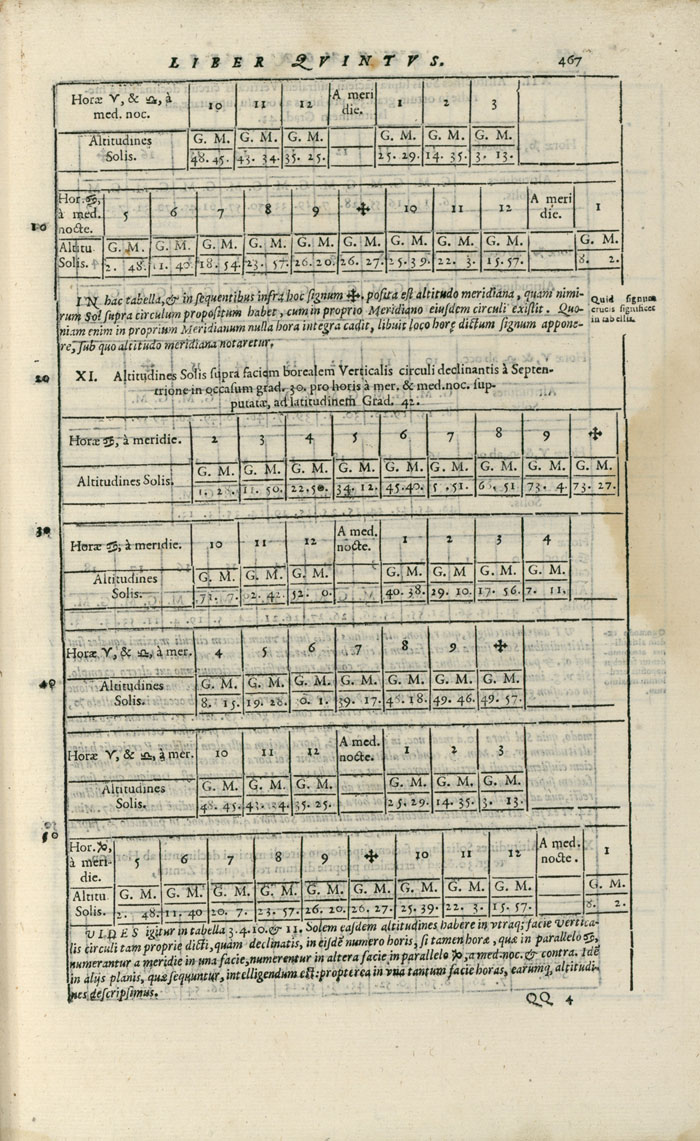 LIBER QVINTVS. 467
Horæ ♈, & ♎, à med. noc. 10 11 12 A meri die. 1 2 3
Altitudines Solis. G. M. G. M. G. M. G. M. G. M. G. M.
48. 45. 43. 34. 35. 25. 25. 29. 14. 35. 3. 13.
10
Hor. ♋, à med. nocte. 5 6 7 8 9 ✠ 10 11 12 A meri die. 1
Altitu. Solis. G. M. G. M. G. M. G. M. G. M. G. M. G. M. G. M. G. M. G. M.
2. 48. 11. 40. 18. 54. 23. 57. 26. 20. 26. 27. 25. 39. 22. 3. 15. 57. 8. 2.
IN hac tabella, & in sequentibus infra hoc signum ✠. posita est altitudo meridiana, quam nimi-
rum Sol supra circulum propositum habet, cum in proprio Meridiano eiusdem circuli existit. Quo-
niam enim in proprium Meridianum nulla hora integra cadit, libuit loco horę dictum signum appone-
re, sub quo altitudo meridiana notaretur.
Quid signum
crucis significet
in tabellis.
20
XI. Altitudines Solis supra faciem borealem Verticalis circuli declinantis à Septen-
trione in occasum grad. 30. pro horis à mer. & med. noc. sup-
putatæ, ad latitudinem Grad. 42.
Horæ ♋, à meridie. 2 3 4 5 6 7 8 9 ✠
Altitudines Solis. G. M. G. M. G. M. G. M. G. M. G. M. G. M. G. M. G. M.
1. 28. 11. 50. 22. 50. 34. 12. 45. 40. 51. 51 73. 4. 73. 27.
30
Horæ ♋, à meridie. 10 11 12 A med. nocte. 1 2 3 4
Altitudines Solis. G. M. G. M. G. M. G. M. G. M G. M. G. M.
7. 42. 52. 0. 40. 38. 29. 10. 17. 56. 7. 11.
Horæ ♈, & ♎, à mer. 4 5 6 7 8 9 ✠
40
Altitudines Solis. G. M. G. M. G. M. G. M. G. M. G. M. G. M.
8. 15. 19. 28. 0. 1. 39. 17. 46. 18. 49. 46. 49. 57.
Horæ ♈, & ♎, à mer. 10 11 12 A med. nocte. 1 2 3
Altitudines Solis. G. M. G. M. G. M. G. M. G. M. G. M.
48. 45. 43. 34. 35. 25. 25. 29. 14. 35. 3. 13.
50
Hor. ♑, à meri- die. 5 6 7 8 9 ✠ 10 11 12 A med. nocte. 1
Altitu. Solis. G. M. G. M. G. M. G. M. G. M. G. M. G. M. G. M. G. M. G. M.
2. 48. 11. 40 20. 7. 23. 57. 26. 20. 26. 27. 25. 39. 22. 3. 15. 57. 8. 2.
VIDES igitur in tabella 3. 4. 10. & 11. Solem easdem altitudines habere in vtraq; facie Vertica-
lis circuli tam proprie dicti, quam declinatis, in eisdē numero horis, si tamen horæ, quæ in parallelo ♋,
numerantur a meridie in una facie, numerentur in altera facie in parallelo ♑, a med. noc. & contra. Idē
in alijs planis, quæ sequuntur, intelligendum est: propterea in vna tantum facie horas, earumq́; altitudi-
nes descripsimus.
QQ 4